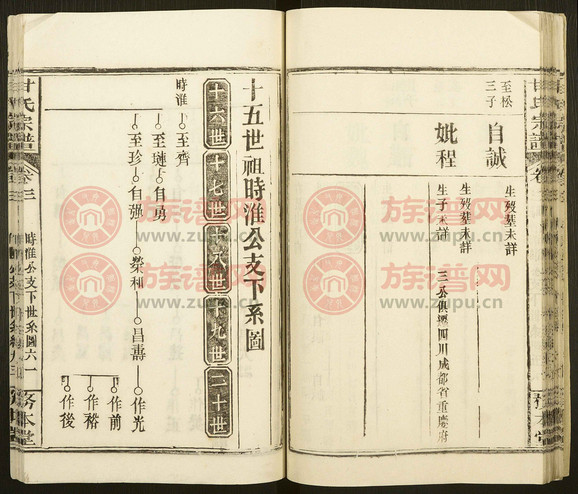 至松
三子
自誠
生歿墓未詳
妣程
生歿墓未詳
生子未詳
三公俱遷四川成都省重慶府
十五世祖時淮公支下系圖
十六世 十七世 十八世 十九世 二十世
時淮
至齊
至璉 自勇
至珍 自強 榮和 昌壽 作光
作前
作裕
作後
甘氏宗譜 卷三
時淮公支下世系圖 六一
務本堂
族谱网
www.zupu.cn
族谱网
www.zupu.cn
族谱网
www.zupu.cn
族谱网
www.zupu.cn